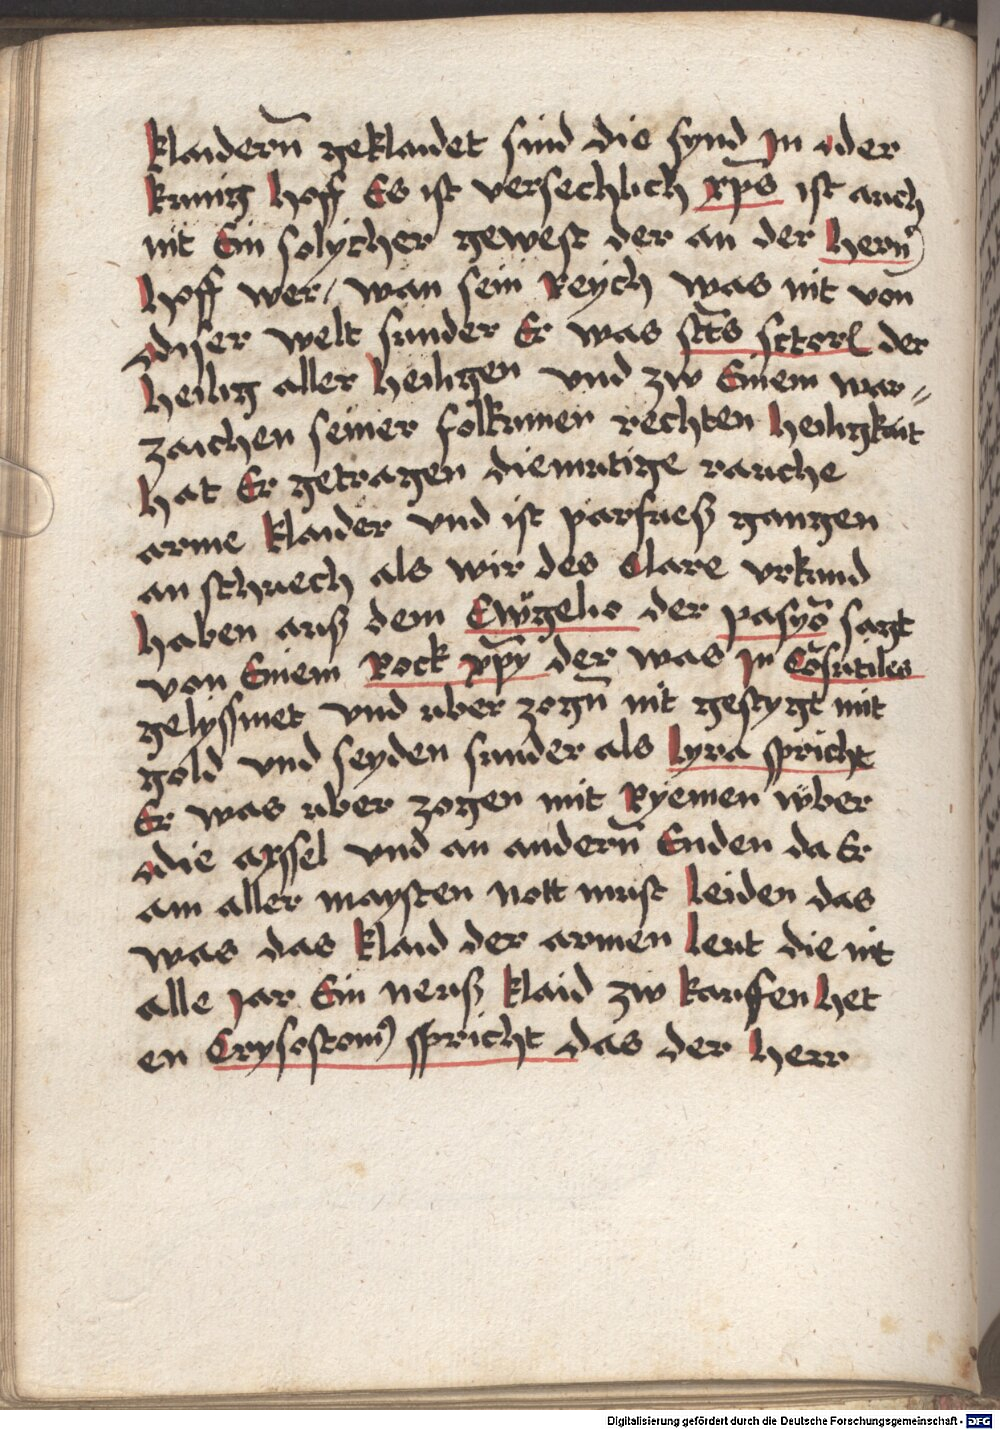 klaidern̄ geklaidet sind die synd Jn der
kunig hoff Es ist versechlich xp̄s ist auch
nit Ein solycher gewest der an der hern̄
hoff wer / wan sein Reych was nit von
diser welt sunder Er was sct̄s sctorꝭ der
heilig aller heiligen vnd zw Einem war⸗
zaichen seiner folkumen rechten heiligkait
hat Er getragen diemutige rauche
arme klaider vnd ist parfueß gangen
an schuech als wir des Clare vrkund
haben auß dem Ewg̈elio der pasyō sagt
von Einem Rock xp̄y der was Jn Cōsutiles
gelyssmet vnd uber zogn̄ nit gestygt mit
gold vnd seyden sunder als lyra spricht
Er was uber zogen mit Ryemen vber
die axssel vnd an andern̄ Enden da Er
am aller maysten nott must leiden das
was das klaid der armen leut die nit
alle Jar Ein neuß klaid zw kauffen het
en Crysostom⁹ spricht das der herr
Digitalisierung gefördert durch die Deutsche Forschungsgemeinschaft - DFG